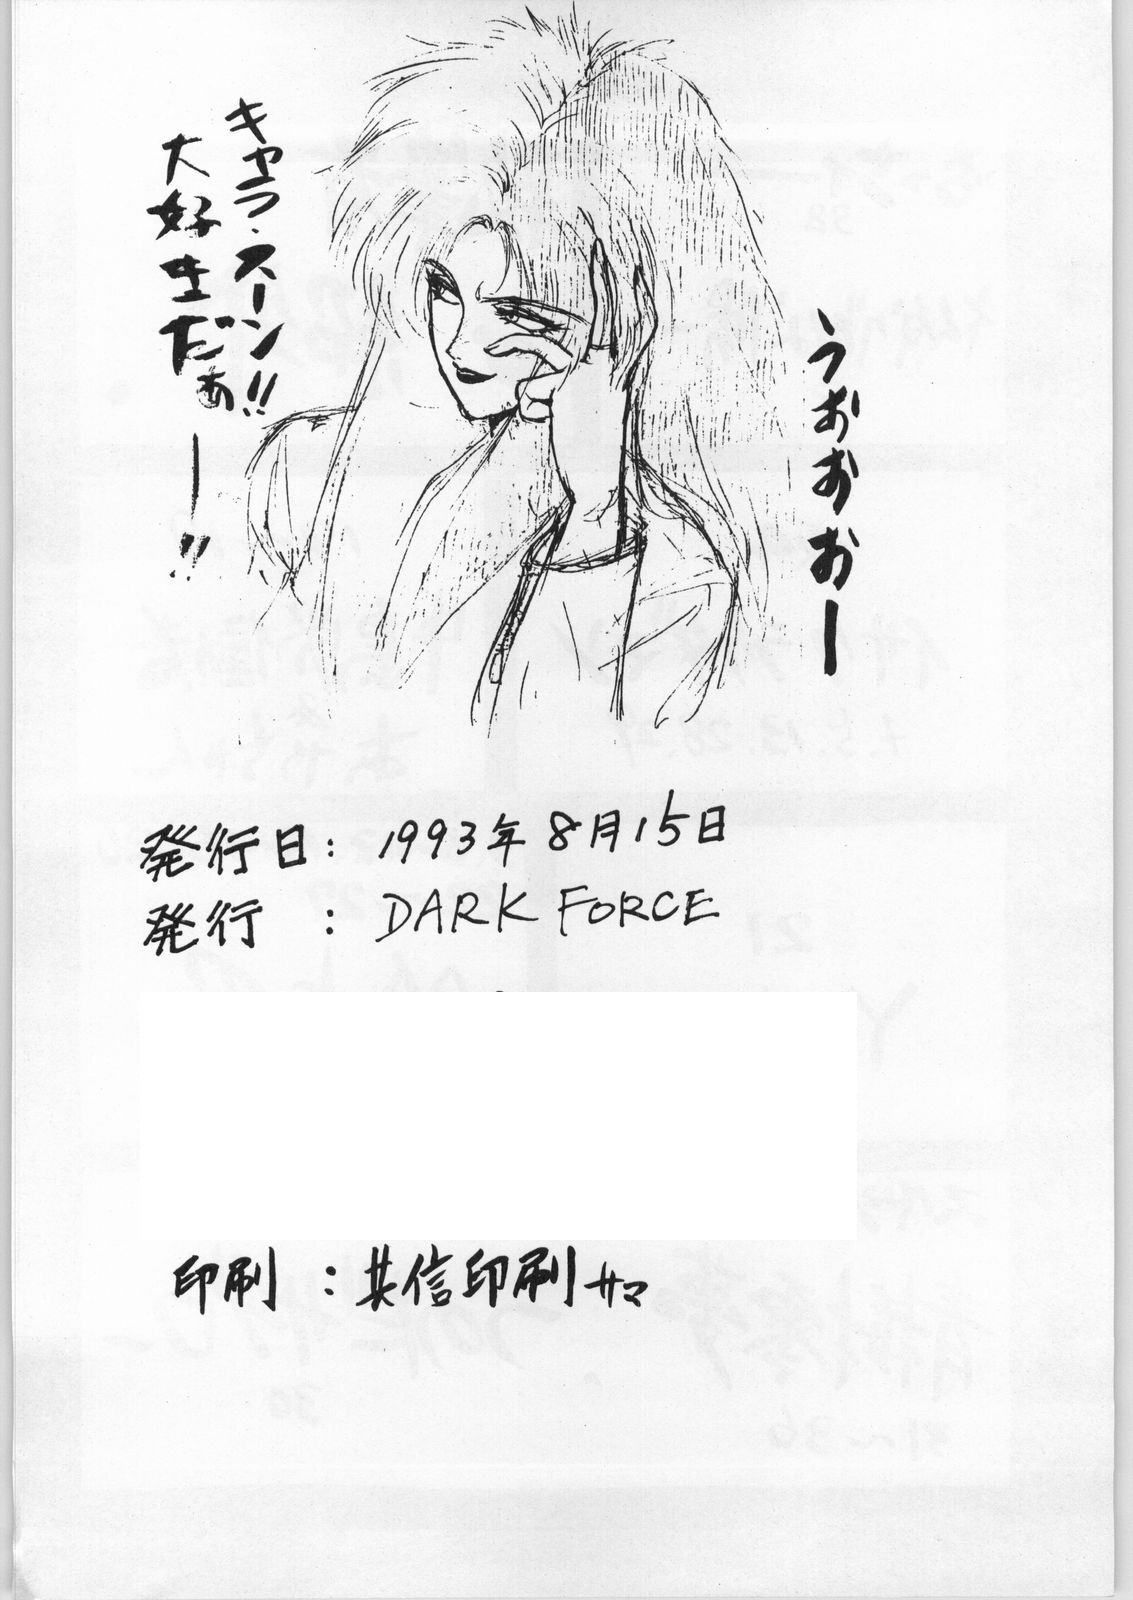 うぉおおおー
キャラ・スーン!!
大好きだぁー!!
発行日: 1993年8月15日
発行 : DARK FORCE
印刷 : 共信印刷サマ